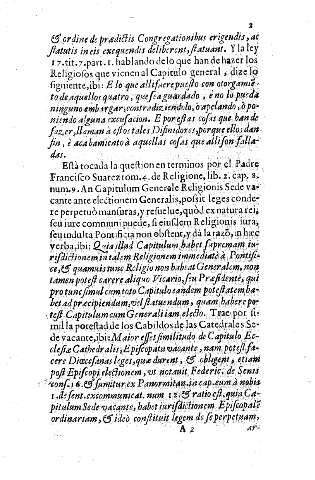 2
& ordine de prædictis Congregationibus erigendis, ac
statutis in eis exequendis deliberent, statuant. Y la ley
17. tit. 7. part. 1. hablando de lo que han de hazer los
Religiosos que vienen al Capitulo general, dize lo
siguiente, ibi: E lo que allí fuere puesto con otorgamiē
to de aquellos quatro, que sea guardado, è no lo pueda
ninguno embargar, contradiziendolo, ò apelando, ò po-
niendo alguna escusacion. E por estas cosas que han de
fazer, llaman à estos tales Difinidores, porque ellos dan
fin, è acabamiento à aquellas cosas que allí son falla-
das.
Està tocada la question en terminos por el Padre
Francisco Suarez tom. 4. de Religione, lib. 2. cap. 8.
num. 9. An Capitulum Generale Religionis Sede va-
cante ante electionem Generalis, possit leges conde-
re perpetuò mansuras, y resuelue, quòd ex natura rei,
seu iure communi puede, si eius Religionis iura,
seu indulta Pontificia non obstent, y dà la razō, in hæc
verba, ibi: Quia illud Capitulum habet supremam iu-
risdictionem in talem Religionem immediatè à Pontifi-
ce, & quamuis tunc Religio non habeat Generalem, non
tamen potest carere aliquo Vicario, seu Præsidente, qui
pro tunc simul cum toto Capitulo eandem potestatem ha-
bet ad præcipiendum, vel statuendum, quam habere po-
test Capitulum cum Generali iam electo. Trae por si-
mil la potestad de los Cabildos de las Catedrales Se-
de vacante, ibi: Maior esse similitudo de Capitulo Ec-
clesiæ Cathedralis, Episcopatu vacante, nam potest fa-
cere Diœcesanas leges, quæ durent, & obligent, etiam
post Episcopi electionem, vt notauit Federic. de Senis
cons. 16. & sumitur ex Panormitan. in cap. cum à nobis
1. de sent. excommunicat. num 12. & ratio est, quia Ca-
pitulum Sede vacante, habet iurisdictionem Episcopalē
ordinariam, & ideò constituit legem de se perpetuam,
A 2 or-